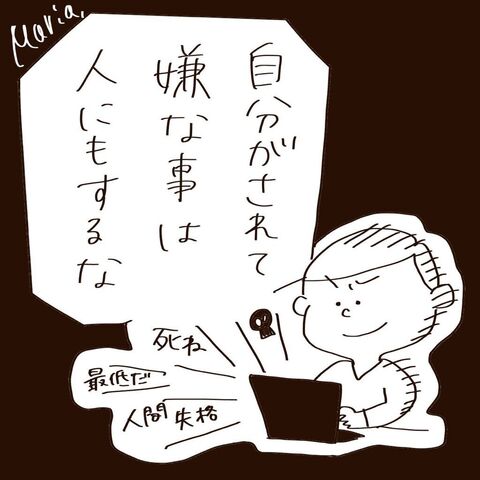 Maria.
自分がされて
嫌な事は
人にもするな
死ね
最低だ
人間失格